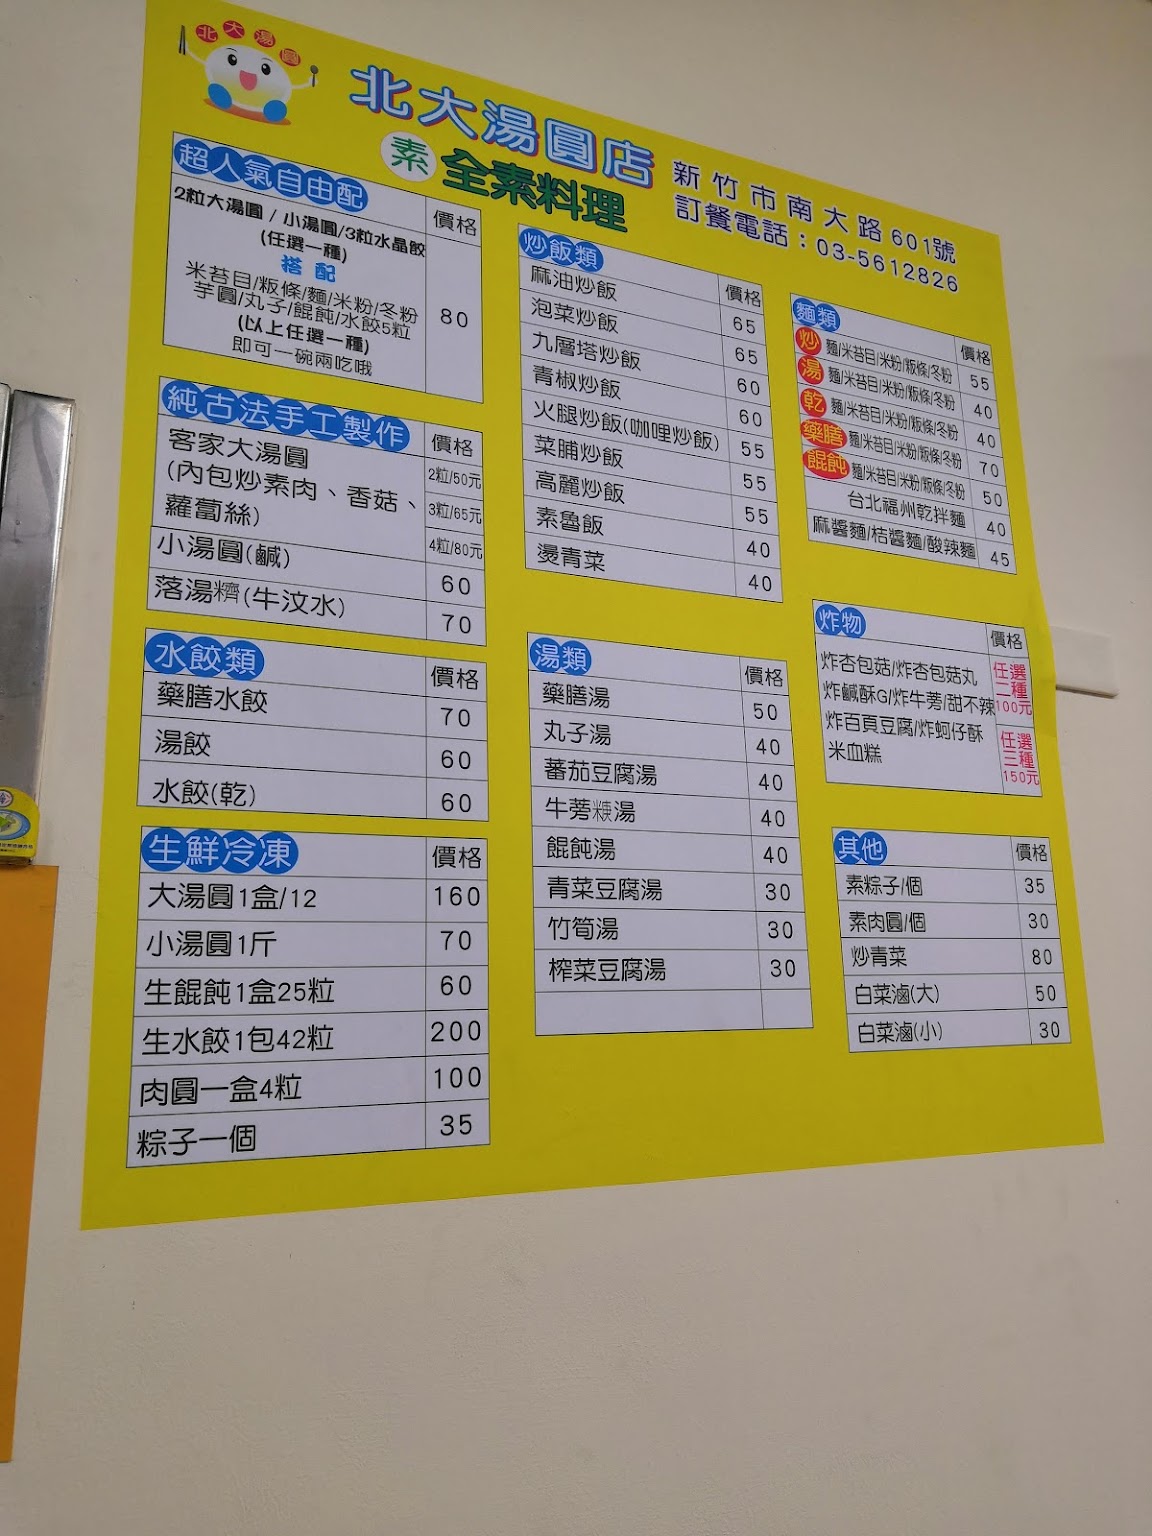 北大湯圓
北大湯圓店
素 全素料理
新竹市南大路601號
訂餐電話：03-5612826
超人氣自由配 價格
2粒大湯圓/小湯圓/3粒水晶餃
(任選一種)
搭配
米苔目/粄條/麵/米粉/冬粉
芋圓/丸子/餛飩/水餃5粒
(以上任選一種)
即可一碗兩吃哦
80
純古法手工製作 價格
客家大湯圓 2粒/50元
(內包炒素肉、香菇、 3粒/65元
蘿蔔絲) 4粒/80元
小湯圓(鹹) 60
落湯糈(牛汶水) 70
水餃類 價格
藥膳水餃 70
湯餃 60
水餃(乾) 60
生鮮冷凍 價格
大湯圓1盒/12 160
小湯圓1斤 70
生餛飩1盒25粒 60
生水餃1包42粒 200
肉圓一盒4粒 100
粽子一個 35
炒飯類 價格
麻油炒飯 65
泡菜炒飯 65
九層塔炒飯 60
青椒炒飯 60
火腿炒飯(咖哩炒飯) 55
菜脯炒飯 55
高麗炒飯 55
素魯飯 40
燙青菜 40
湯類 價格
藥膳湯 50
丸子湯 40
蕃茄豆腐湯 40
牛蒡湯 40
餛飩湯 40
青菜豆腐湯 30
竹筍湯 30
榨菜豆腐湯 30
麵類 價格
炒 麵/米苔目/米粉/粄條/冬粉 55
湯 麵/米苔目/米粉/粄條/冬粉 40
乾 麵/米苔目/米粉/粄條/冬粉 40
藥膳 麵/米苔目/米粉/粄條/冬粉 70
餛飩 麵/米苔目/米粉/粄條/冬粉 50
台北福州乾拌麵 40
麻醬麵/桔醬麵/酸辣麵 45
炸物 價格
炸杏包菇/炸杏包菇丸
炸鹹酥G/炸牛蒡/甜不辣
炸百頁豆腐/炸蚵仔酥
米血糕
任選
二種
100元
任選
三種
150元
其他 價格
素粽子/個 35
素肉圓/個 30
炒青菜 80
白菜滷(大) 50
白菜滷(小) 30